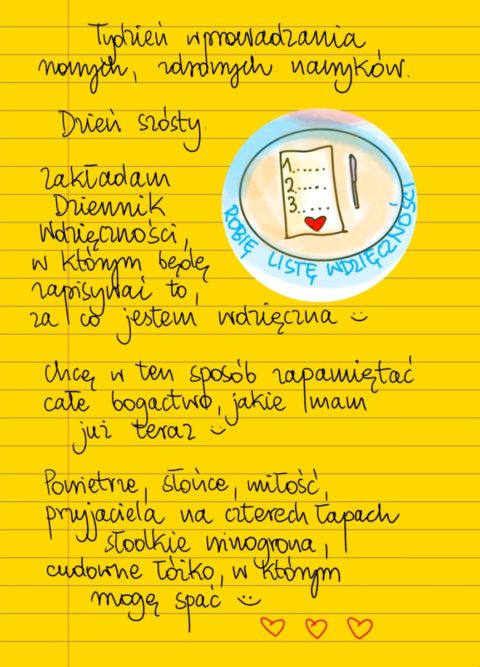 Tydzień wprowadzania
nowych, zdrowych nawyków.
Dzień szósty.
Zakładam
Dziennik
Wdzięczności,
w którym będę
zapisywać to,
za co jestem wdzięczna
1.....
2.....
3.....
ROBIĘ LISTĘ WDZIĘCZNOŚCI
Chcę w ten sposób zapamiętać
całe bogactwo, jakie mam
już teraz
Powietrze, słońce, miłość,
przyjaciela na czterech łapach
słodkie winogrona,
cudowne łóżko, w którym
mogę spać